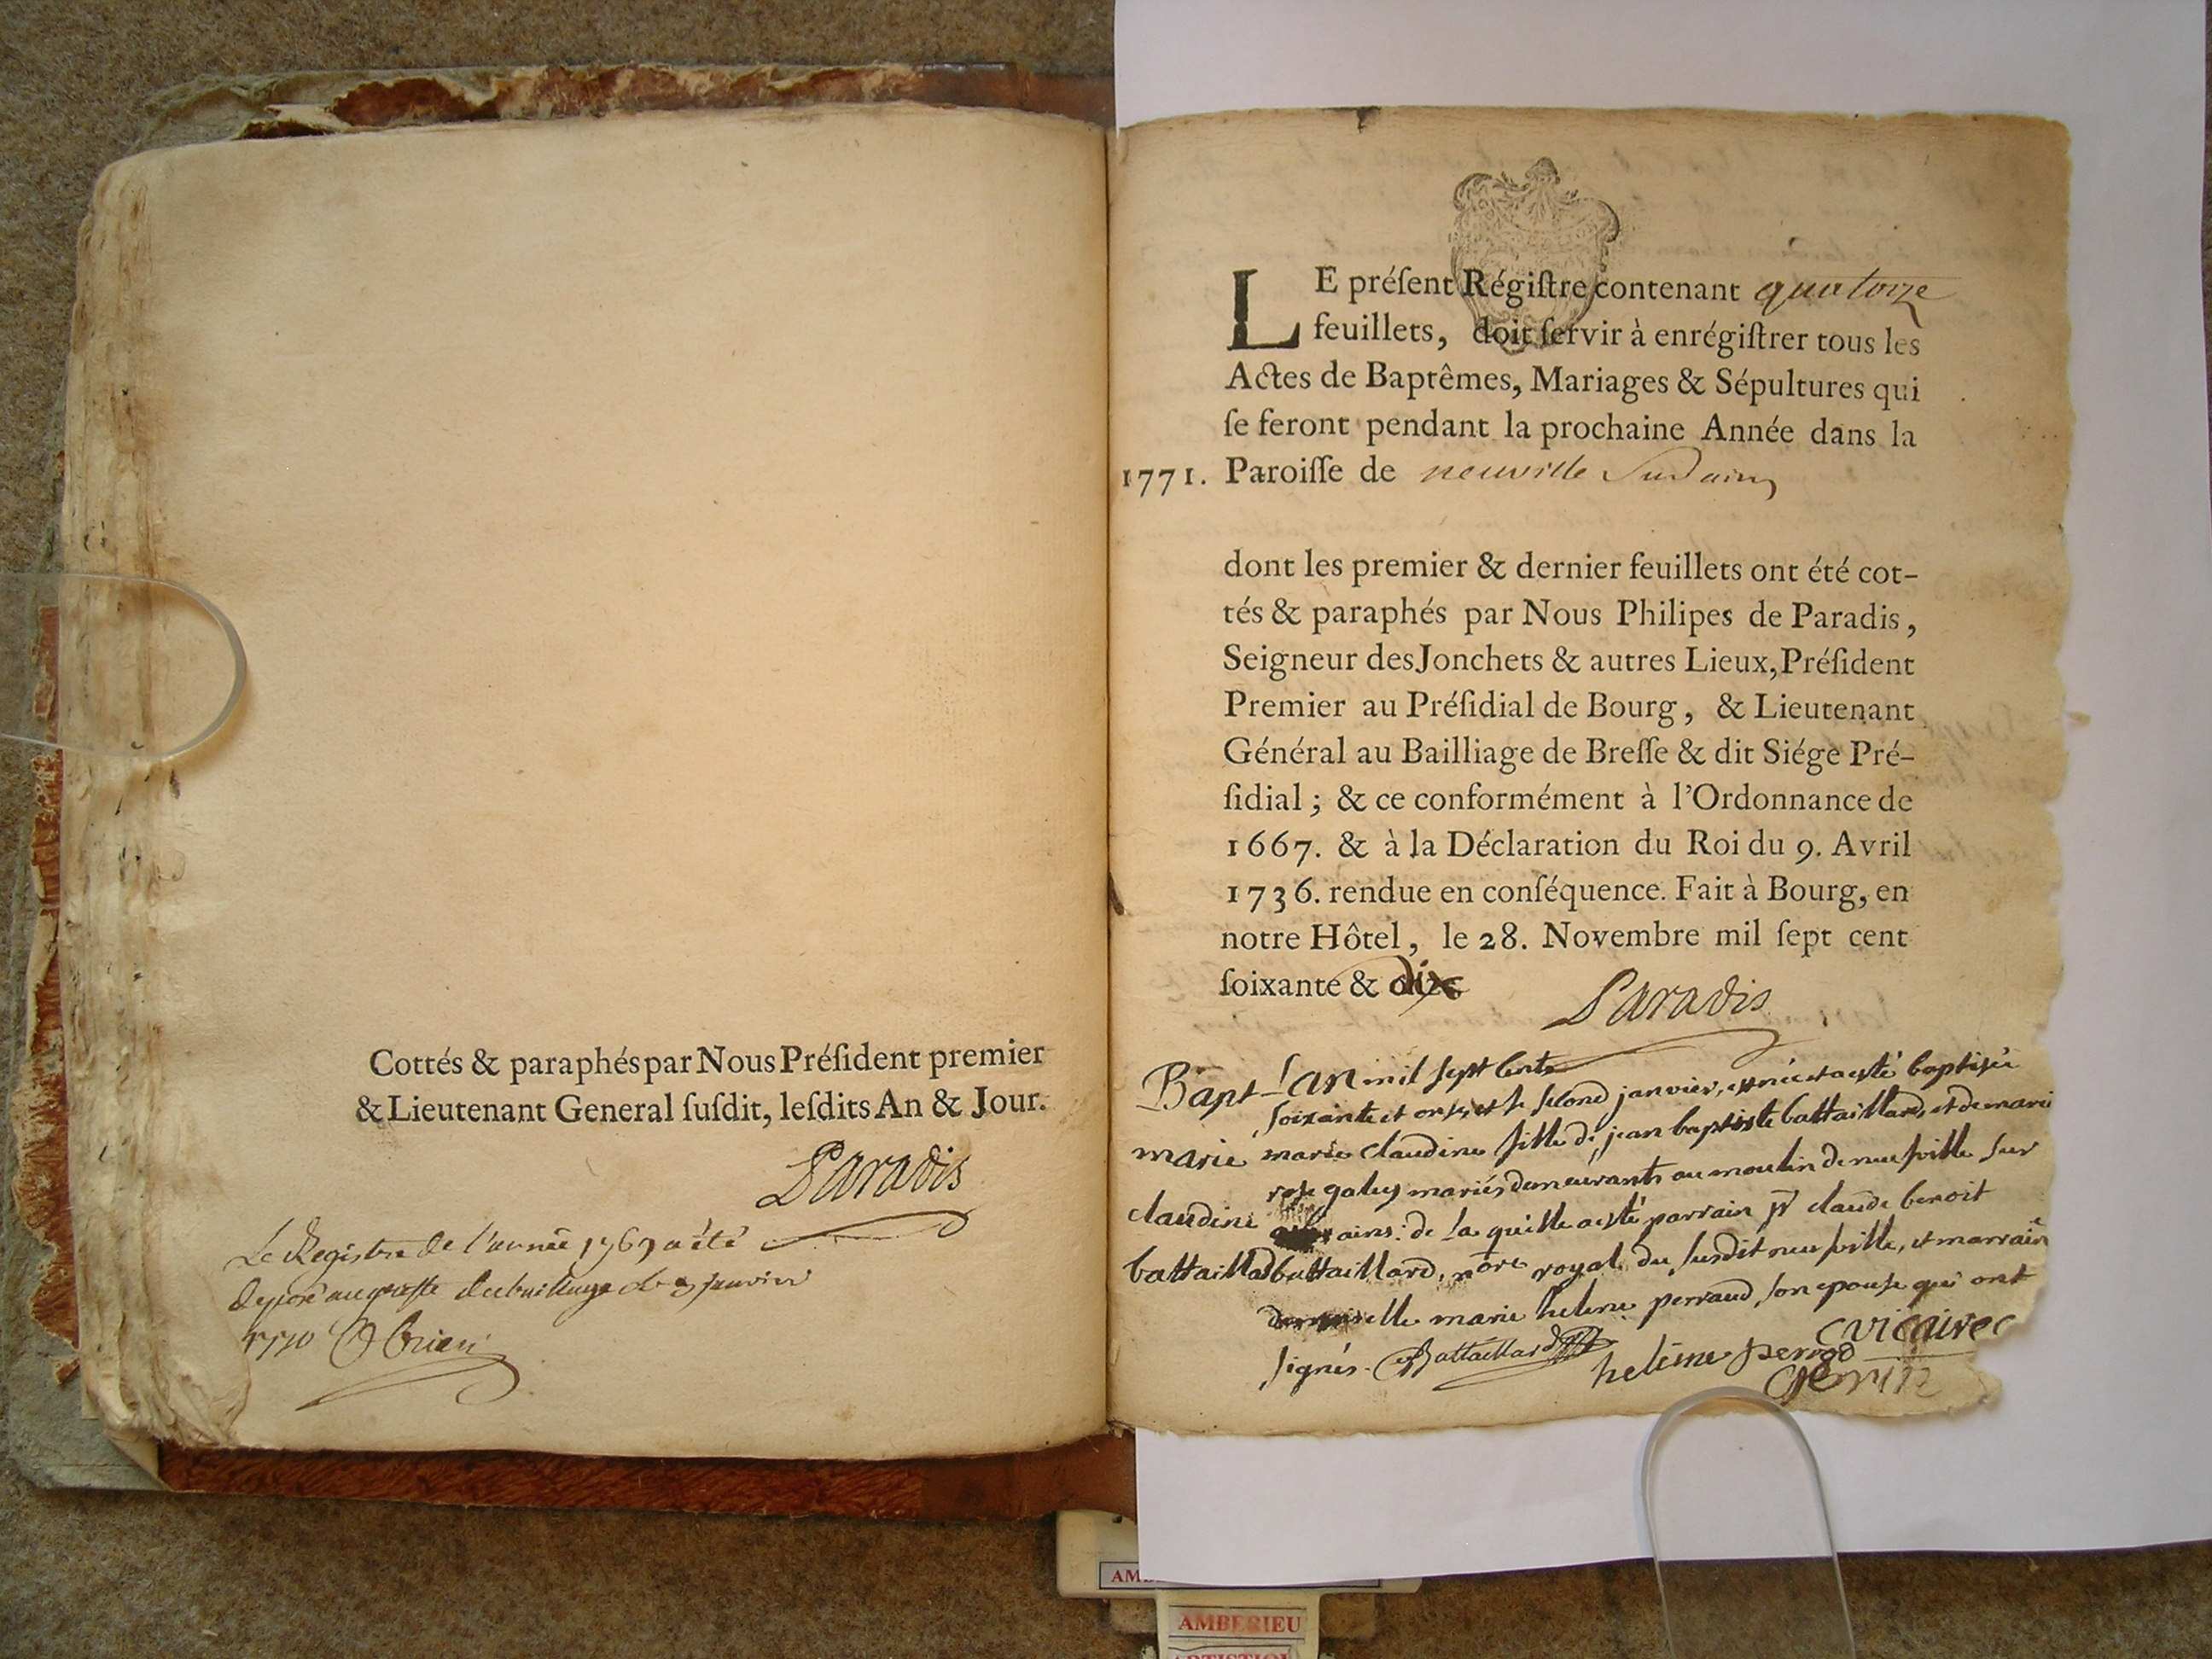 Cottés & paraphés par Nous Préſident premier
& Lieutenant General ſuſdit, leſdits An & Jour.
Paradis
Le Registre de l'année 1769 a été
deposé au greffe du bailliage le 3 janvier
1770 Obrien
LE préſent Régiſtre contenant quatorze
feuillets, doit ſervir à enrégiſtrer tous les
Actes de Baptêmes, Mariages & Sépultures qui
ſe feront pendant la prochaine Année dans la
1771. Paroiſſe de neuville Sur dain
dont les premier & dernier feuillets ont été cot-
tés & paraphés par Nous Philipes de Paradis,
Seigneur des Jonchets & autres Lieux, Préſident
Premier au Préſidial de Bourg, & Lieutenant
Général au Bailliage de Breſſe & dit Siége Pré-
ſidial; & ce conformément à l'Ordonnance de
1667. & à la Déclaration du Roi du 9. Avril
1736. rendue en conſéquence. Fait à Bourg, en
notre Hôtel, le 28. Novembre mil ſept cent
ſoixante & dix
Paradis
Bapt L'an mil sept cents
soixante et onze, et le second janvier, est née et a esté baptisée
marie marie claudine fille de jean baptiste battaillard, et de marie
rose galey mariés demeurants au moulin de neufville sur
claudine ains: de la quelle a esté parrain sr claude benoit
battaillad battaillard, nore royal du susdit neufville, et marraine
demoiselle marie helene perraud, son epouse qui ont
signés. Battaillard helene perrod
vicaire
AMBERIEU